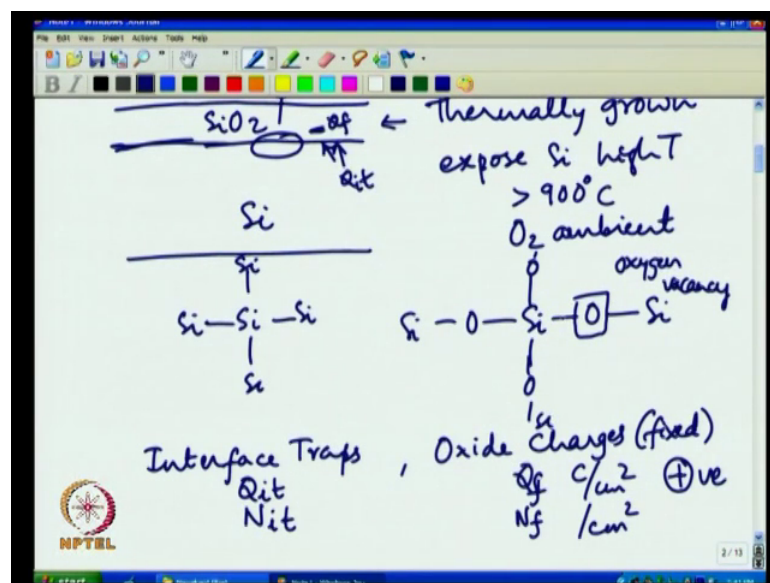 Note1 - Windows Journal
File Edit View Insert Actions Tools Help
B I
SiO2 Qf ← Thermally grown
Qit
expose Si high T
> 900°C
Si
O2 ambient
Si
O
oxygen
vacancy
Si—Si—Si
Si - O - Si - O - Si
Si
O
Si
Interface Traps , Oxide Charges (fixed)
Qit Qf C/cm² +ve
Nit Nf /cm²
NPTEL
2 / 13
start